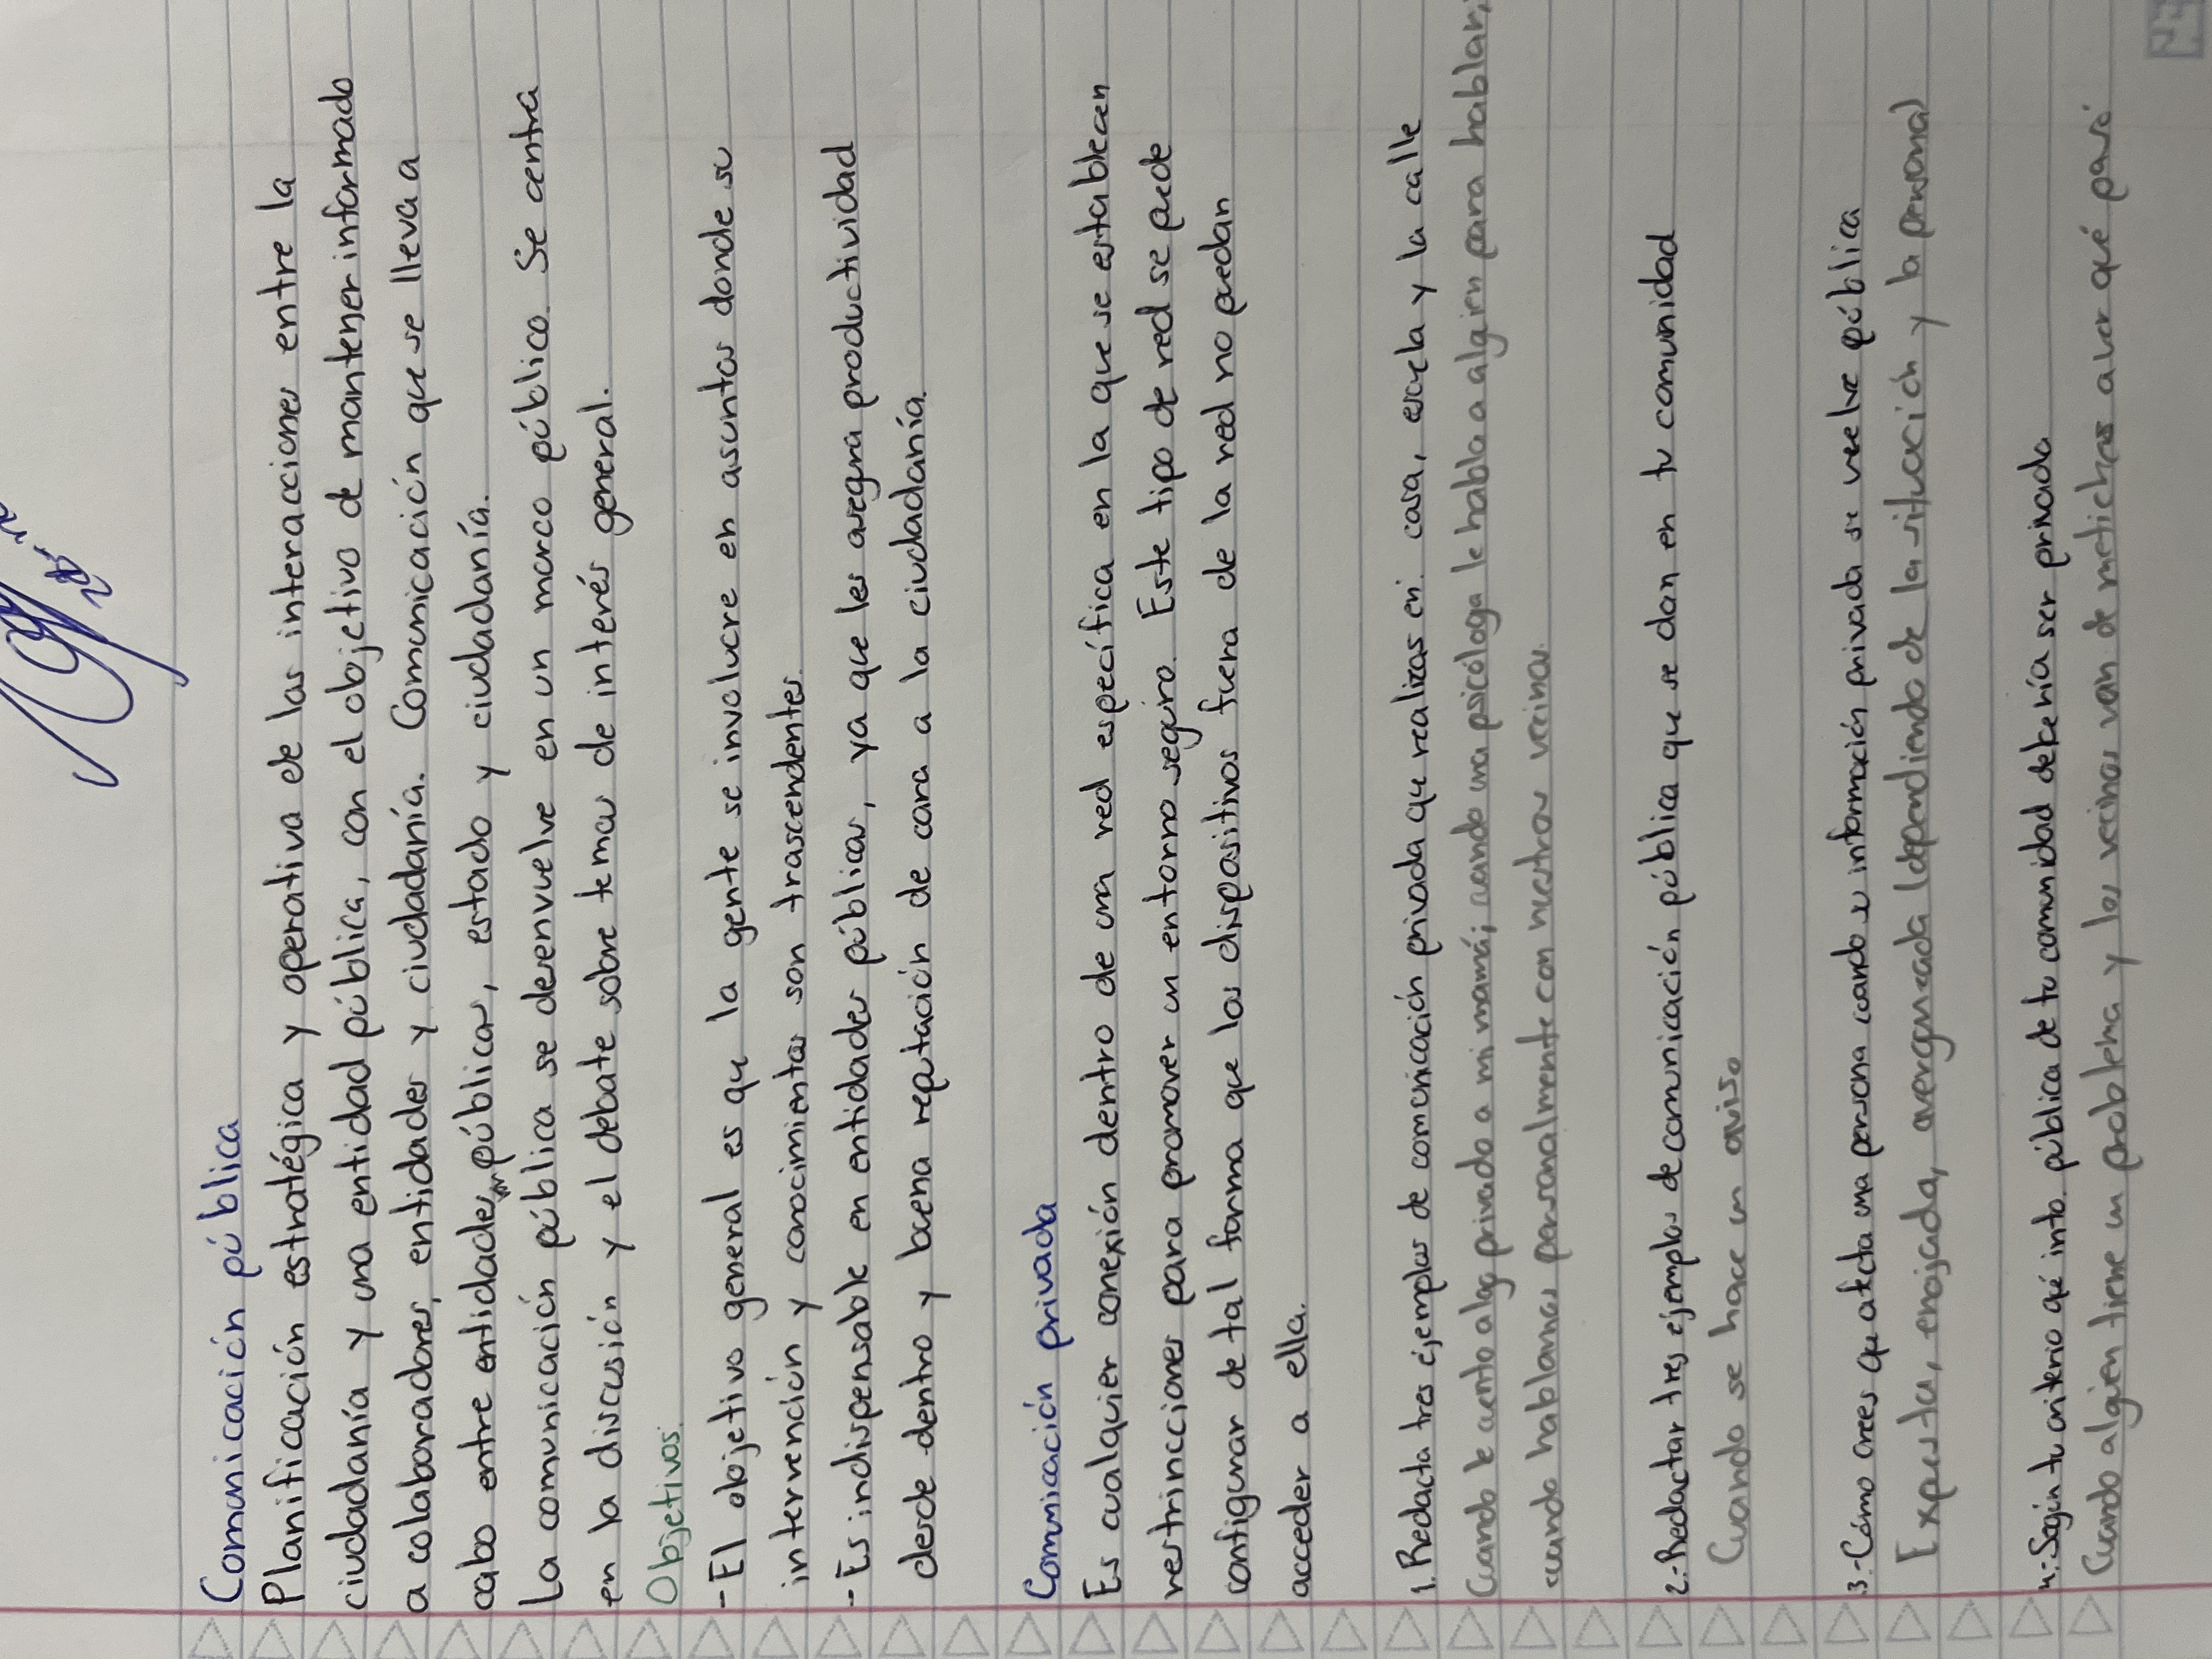 Comunicación pública
Planificación estratégica y operativa de las interacciones entre la
ciudadanía y una entidad pública, con el objetivo de mantener informado
a colaboradores, entidades y ciudadanía. Comunicación que se lleva a
cabo entre entidades públicas, estado y ciudadanía.
La comunicación pública se desenvuelve en un marco público. Se centra
en la discusión y el debate sobre temas de interés general.
Objetivos:
- El objetivo general es que la gente se involucre en asuntos donde su
intervención y conocimientos son trascendentes.
- Es indispensable en entidades públicas, ya que les asegra productividad
desde dentro y buena reputación de cara a la ciudadanía.
Comunicación privada
Es cualquier conexión dentro de una red específica en la que se establecen
restrincciones para promover un entorno seguro. Este tipo de red se puede
configurar de tal forma que los dispositivos fuera de la red no puedan
acceder a ella.
1. Redacta tres ejemplos de comunicación privada que realizas en: casa, escuela y la calle
Cuando le cuento algo privado a mi mamá; cuando una psicóloga le habla a alguien para hablar;
cuando hablamos personalmente con nuestros vecinos.
2.- Redactar tres ejemplos de comunicación pública que se dan en tu comunidad
Cuando se hace un aviso
3.- Cómo crees que afecta una persona cuando su información privada se vuelve pública
Expuesta, enojada, avergonzada (dependiendo de la situación y la persona)
4.- Según tu criterio qué info. pública de tu comunidad debería ser privada
Cuando alguien tiene un problema y los vecinos van de metiches a ver qué pasó